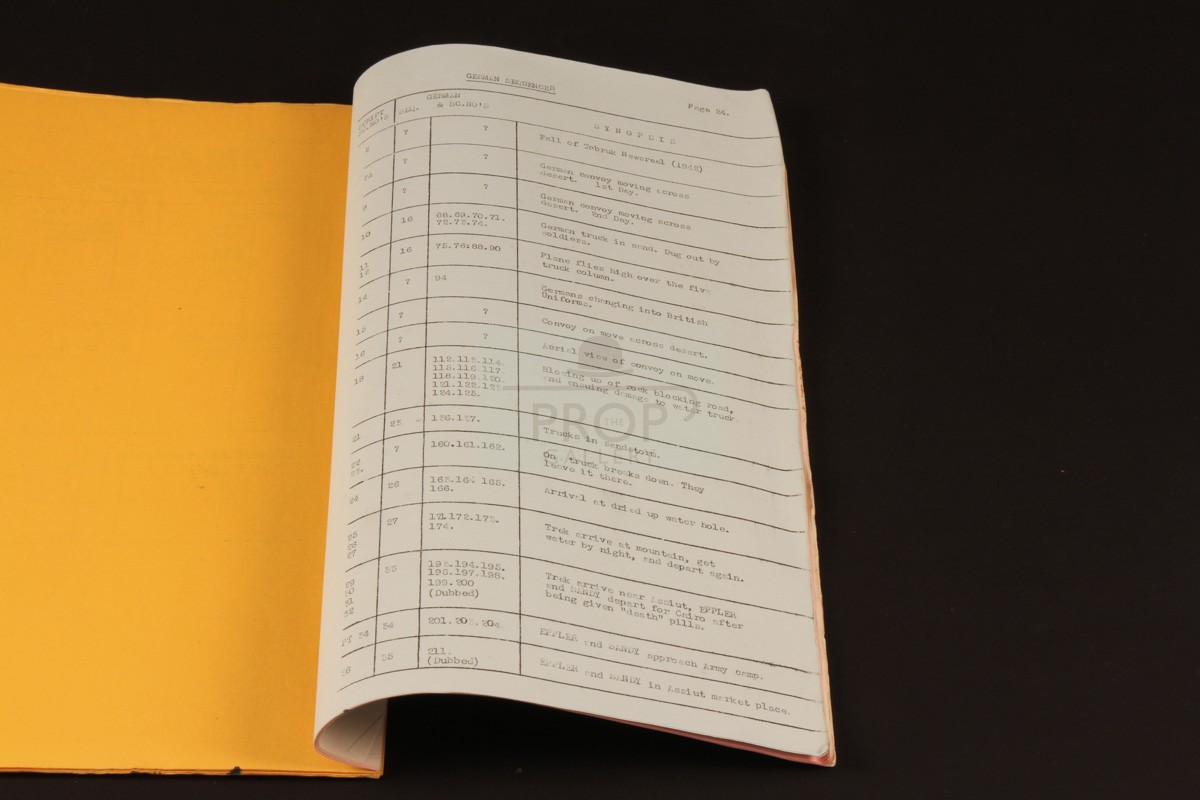 GERMAN SEQUENCES
Page 24.
SC.NO'S SEQ. GERMAN & SC.NO'S SYNOPSIS
? ? Fall of Tobruk Newsreel (1942)
? ? German convoy moving across
desert. 1st Day.
9 ? ? German convoy moving across
desert. 2nd Day.
10 16 68.69.70.71. German truck in sand. Dug out by
72.73.74. soldiers.
11 16 75.76.88.90 Plane flies high over the five
12 truck column.
14 ? 94 Germans changing into British
Uniforms.
15 ? ? Convoy on move across desert.
16 ? ? Aerial view of convoy on move.
18 21 112.113.114. Blowing up of rock blocking road,
115.116.117. and ensuing damage to water truck.
118.119.120.
121.122.123.
124.125.
21 25 136.137. Trucks in sandstorm.
22 ? 160.161.162. On truck breaks down. They
23. leave it there.
24 26 163.164 165. Arrival at dried up water hole.
166.
25 27 171.172.173. Trek arrive at mountain, get
26 174. water by night, and depart again.
27
29 33 193.194.195. Trek arrive near Assiut, EFFLER
30 196.197.198. and SANDY depart for Cairo after
31 199.200 being given "death" pills.
32 (Dubbed)
PT 34 34 201.203.204. EFFLER and SANDY approach Army camp.
36 35 211. EFFLER and SANDY in Assiut market place.
(Dubbed)
THE
PROP
GALLERY